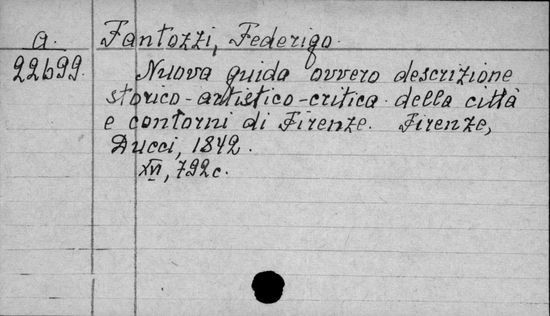 a. Fantozzi, Federigo.
22699. Nuova guida ovvero descrizione
storico-artistico-critica della città
e contorni di Firenze. Firenze,
Ducci, 1842.
XVI, 792 c.